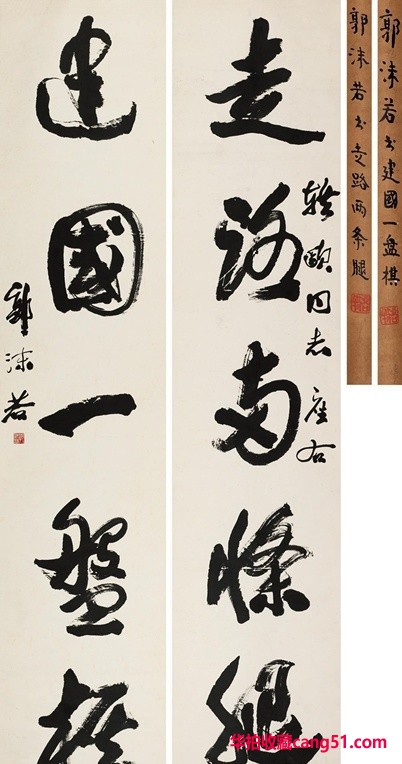 郭沫若书建國一盘棋
郭沫若书走路两条腿
軼歐同志 座右
走路两條腿
建國一盤棋
郭沫若
华拍收藏cang51.com